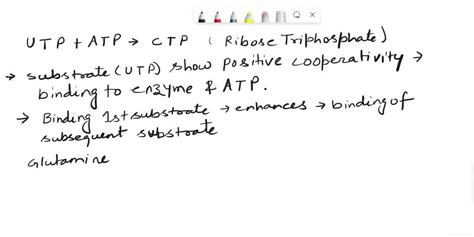 UTP + ATP → CTP ( Ribose Triphosphate)
→ substrate (UTP) show positive cooperativity →
binding to enzyme & ATP.
→ Binding 1st substrate → enhances → binding of
subsequent substrate
Glutamine